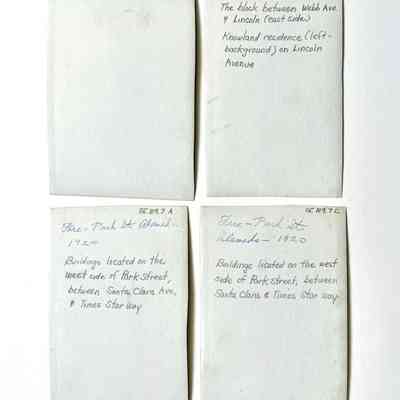 The block between Webb Ave.
& Lincoln (east side)
Knowland residence (left-
background) on Lincoln
Avenue
Fire - Park St. Alameda -
1920
Buildings located on the
west side of Park Street,
between Santa Clara Ave.
& Times Star Way
Fire - Park St.
Alameda - 1920
Buildings located on the west
side of Park Street, between
Santa Clara & Times Star Way